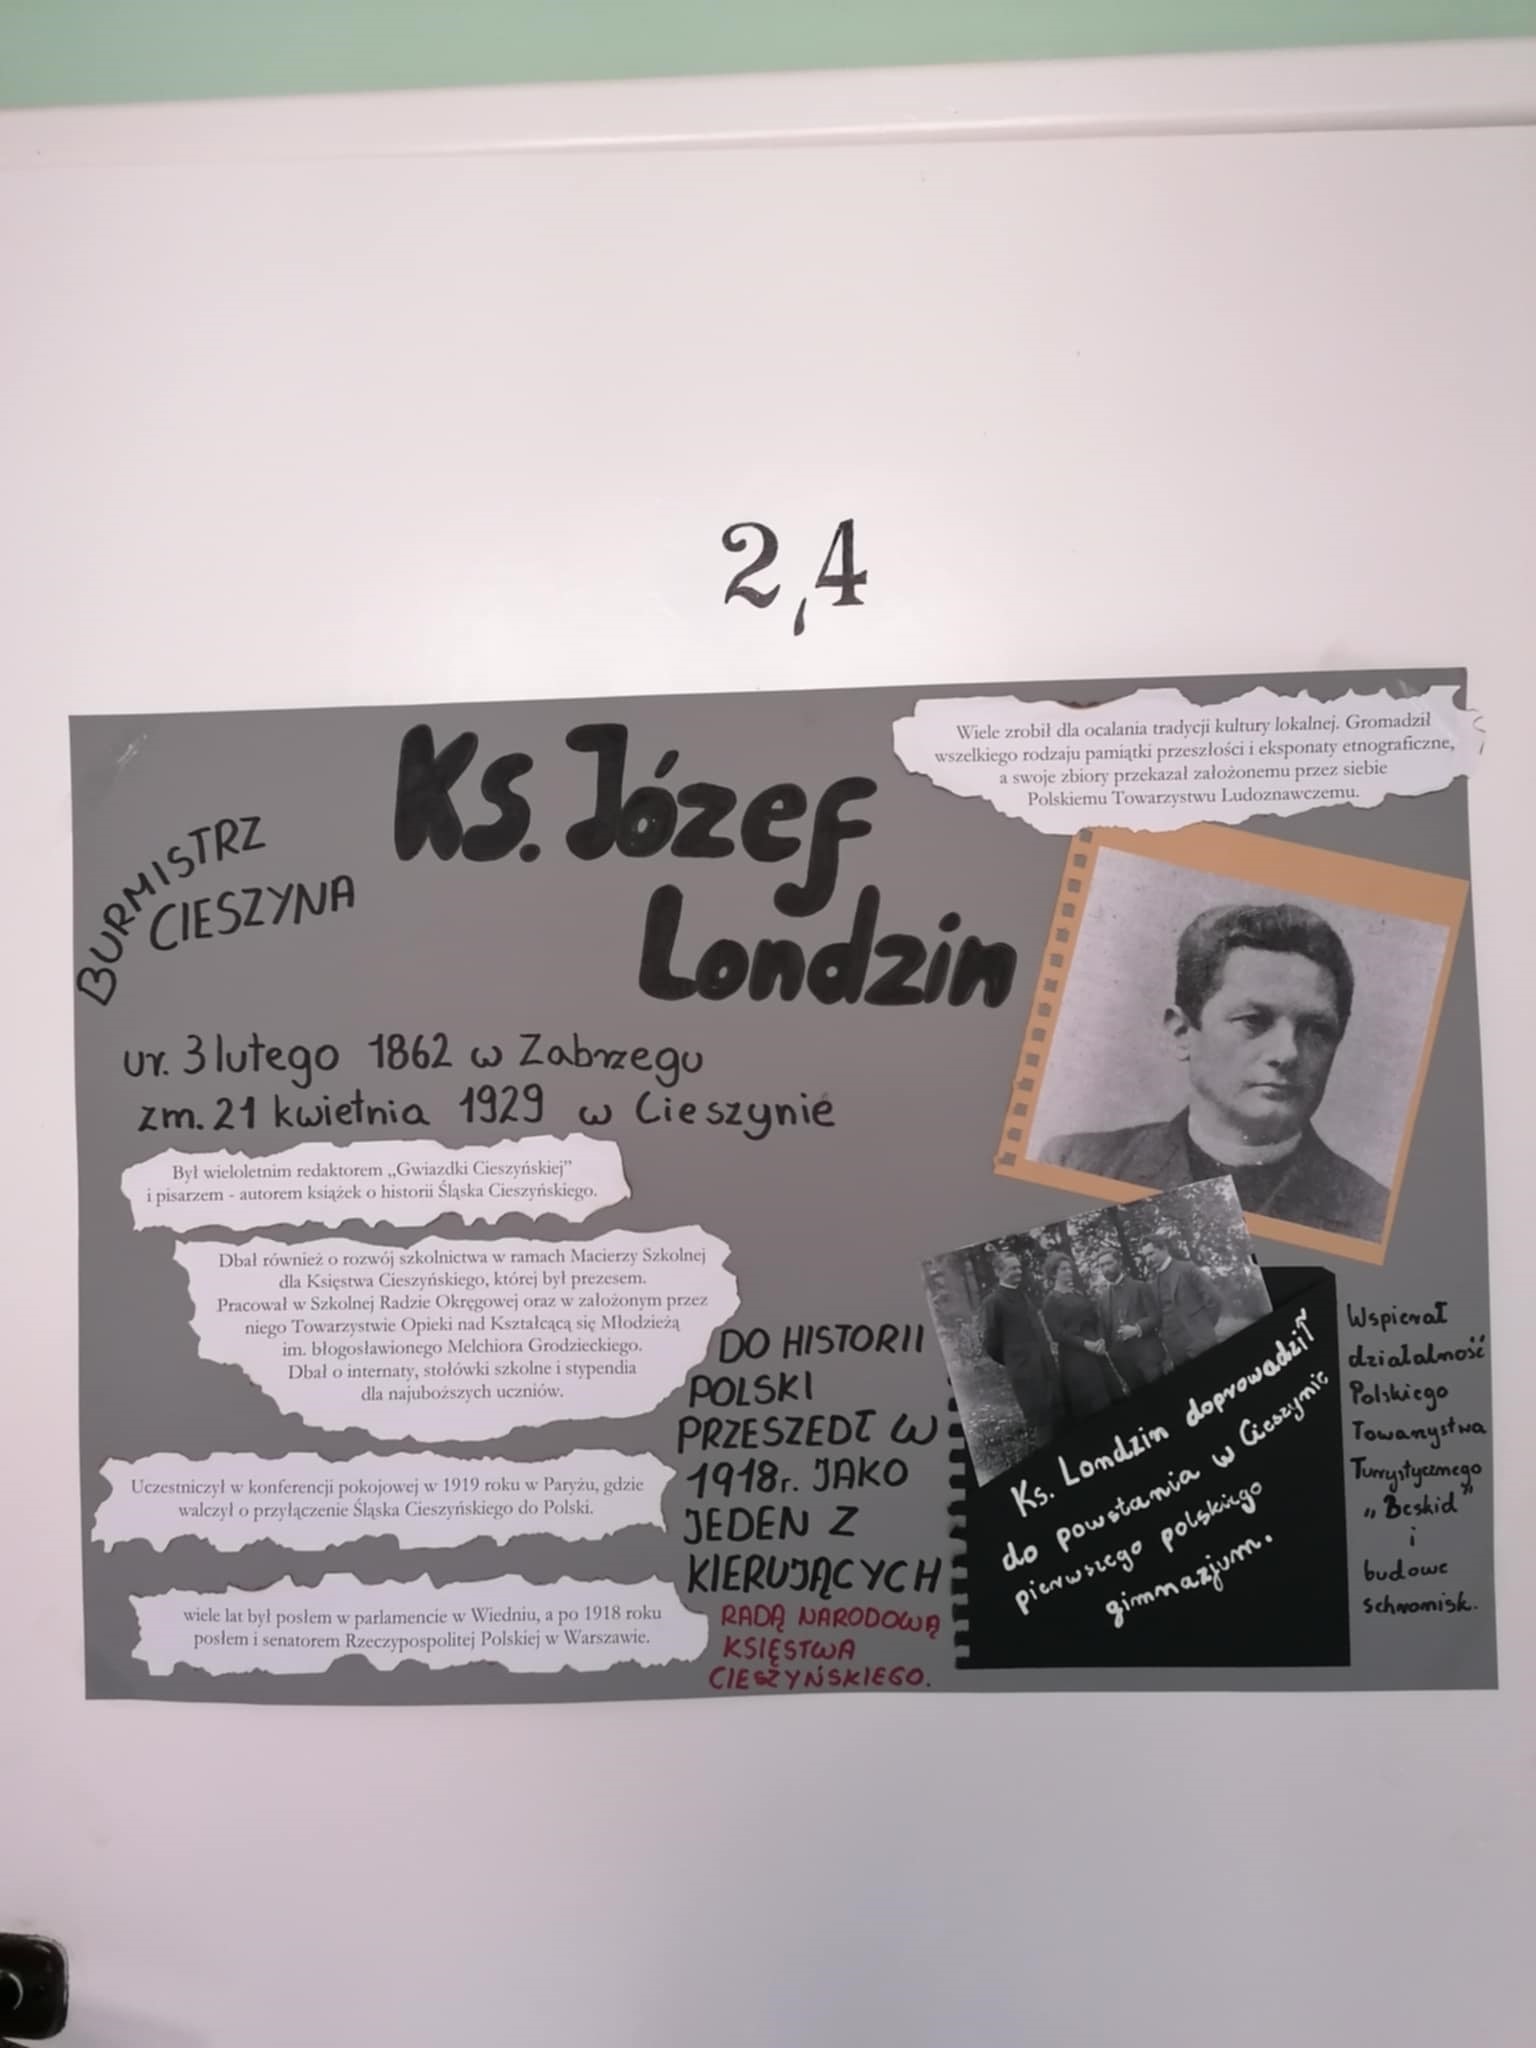 2,4
Ks. Józef
Londzin
BURMISTRZ
CIESZYNA
ur. 3 lutego 1862 w Zabrzegu
zm. 21 kwietnia 1929 w Cieszynie
Wiele zrobił dla ocalania tradycji kultury lokalnej. Gromadził
wszelkiego rodzaju pamiątki przeszłości i eksponaty etnograficzne,
a swoje zbiory przekazał założonemu przez siebie
Polskiemu Towarzystwu Ludoznawczemu.
Był wieloletnim redaktorem „Gwiazdki Cieszyńskiej”
i pisarzem - autorem książek o historii Śląska Cieszyńskiego.
Dbał również o rozwój szkolnictwa w ramach Macierzy Szkolnej
dla Księstwa Cieszyńskiego, której był prezesem.
Pracował w Szkolnej Radzie Okręgowej oraz w założonym przez
niego Towarzystwie Opieki nad Kształcącą się Młodzieżą
im. błogosławionego Melchiora Grodzieckiego.
Dbał o internaty, stołówki szkolne i stypendia
dla najuboższych uczniów.
Uczestniczył w konferencji pokojowej w 1919 roku w Paryżu, gdzie
walczył o przyłączenie Śląska Cieszyńskiego do Polski.
wiele lat był posłem w parlamencie w Wiedniu, a po 1918 roku
posłem i senatorem Rzeczypospolitej Polskiej w Warszawie.
DO HISTORII
POLSKI
PRZESZEDŁ W
1918r. JAKO
JEDEN Z
KIERUJĄCYCH
RADĄ NARODOWĄ
KSIĘSTWA
CIESZYŃSKIEGO.
Ks. Londzin doprowadził
do powstania w Cieszynie
pierwszego polskiego
gimnazjum.
Wspierał
działalność
Polskiego
Towarzystwa
Turystycznego
„Beskid”
i
budowe
schronisk.